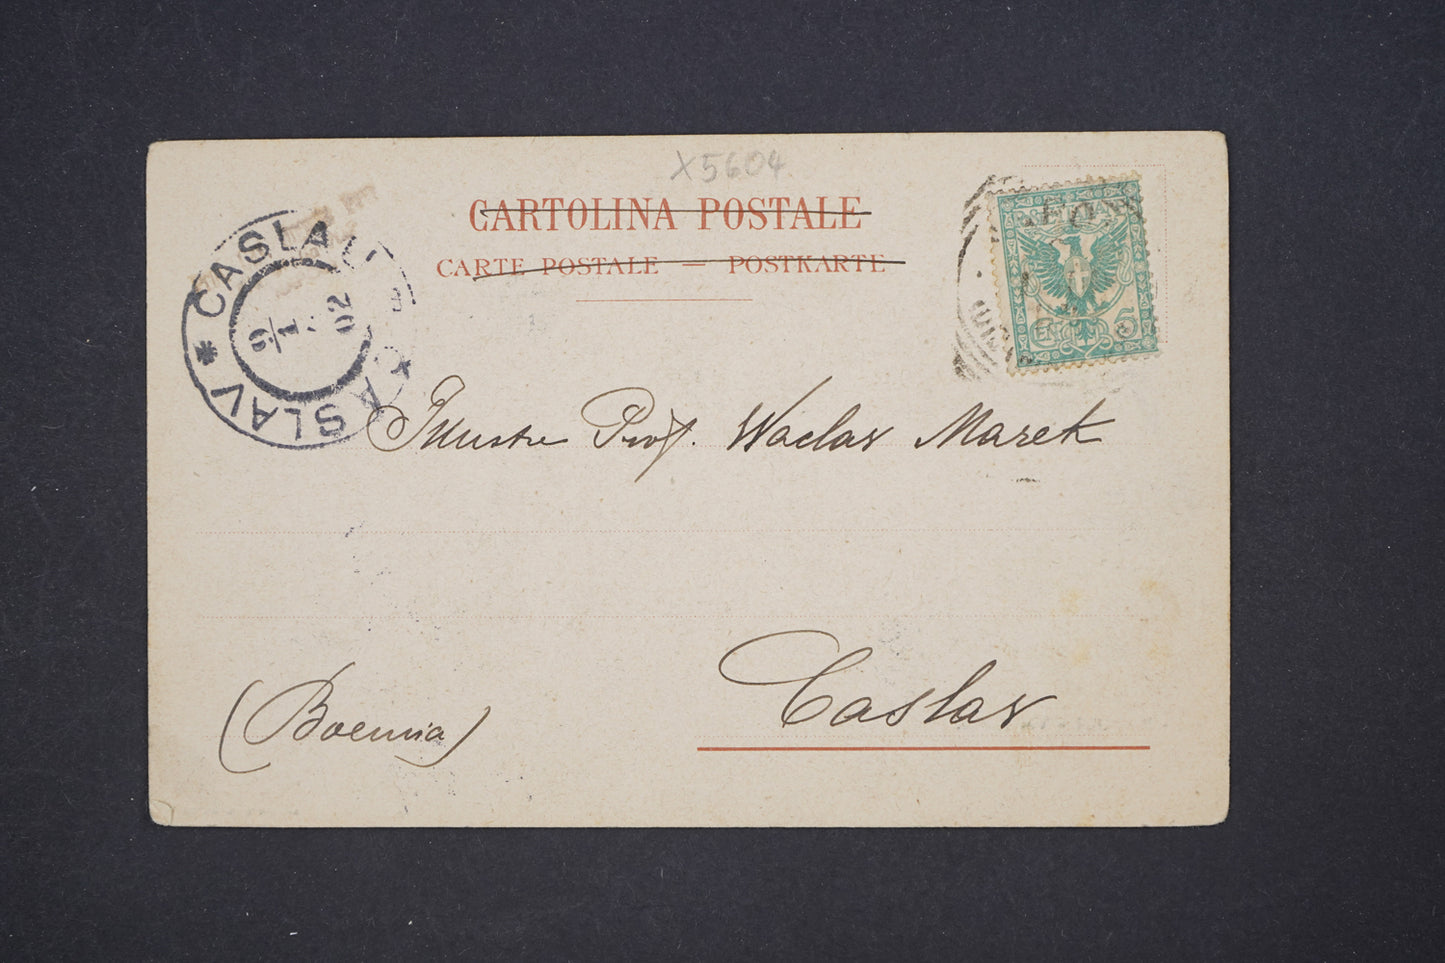 X5604
CARTOLINA POSTALE
CARTE POSTALE = POSTKARTE
CASLAU
9/1
02
CASLAV
5
Illustre Prof. Waclav Marek
Caslav
(Boemia)